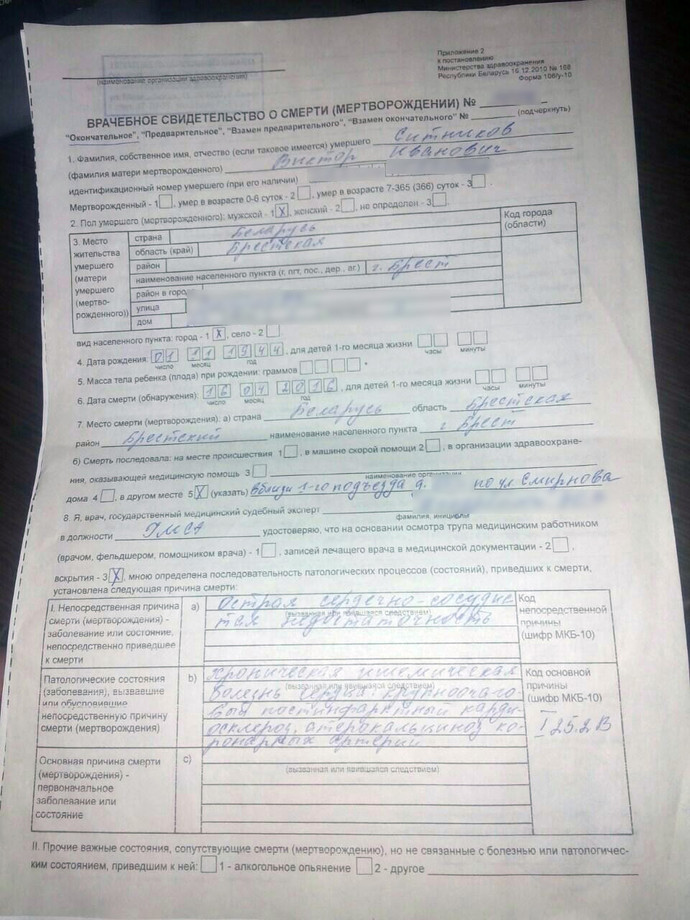 Приложение 2
к постановлению
Министерства здравоохранения
Республики Беларусь 16.12.2010 № 168
Форма 106/у-10
(наименование организации здравоохранения)
ВРАЧЕБНОЕ СВИДЕТЕЛЬСТВО О СМЕРТИ (МЕРТВОРОЖДЕНИИ) №
"Окончательное", "Предварительное", "Взамен предварительного", "Взамен окончательного" № (подчеркнуть)
1. Фамилия, собственное имя, отчество (если таковое имеется) умершего Ситников
(фамилия матери мертворожденного) Виктор Иванович
идентификационный номер умершего (при его наличии)
Мертворожденный - 1, умер в возрасте 0-6 суток - 2, умер в возрасте 7-365 (366) суток - 3.
2. Пол умершего (мертворожденного): мужской - 1 X, женский - 2, не определен - 3.
3. Место жительства умершего (матери умершего (мертворожденного))
страна Беларусь
Код города (области)
область (край) Брестская
район
наименование населенного пункта (г, пгт, пос., дер., аг.) г. Брест
район в городе
улица
дом
вид населенного пункта: город - 1 X, село - 2
4. Дата рождения: 01 11 1944, для детей 1-го месяца жизни
число месяц год часы минуты
5. Масса тела ребенка (плода) при рождении: граммов
6. Дата смерти (обнаружения): 16 04 2016, для детей 1-го месяца жизни
число месяц год часы минуты
7. Место смерти (мертворождения): а) страна Беларусь область Брестская
район Брестский наименование населенного пункта г Брест
б) Смерть последовала: на месте происшествия 1, в машине скорой помощи 2, в организации здравоохране-
ния, оказывающей медицинскую помощь 3
наименование организации
дома 4, в другом месте 5 X (указать) вблизи 1-го подъезда д. по ул Смирнова
8. Я, врач, государственный медицинский судебный эксперт
фамилия, инициалы
в должности удостоверяю, что на основании осмотра трупа медицинским работником
(врачом, фельдшером, помощником врача) - 1, записей лечащего врача в медицинской документации - 2,
вскрытия - 3 X, мною определена последовательность патологических процессов (состояний), приведших к смерти,
установлена следующая причина смерти:
I. Непосредственная причина смерти (мертворождения) - заболевание или состояние, непосредственно приведшее к смерти
а) острая сердечно-сосудис
(вызванная или явившаяся следствием)
тая недостаточность
Код непосредственной причины (шифр МКБ-10)
Патологические состояния (заболевания), вызвавшие или обусловившие непосредственную причину смерти (мертворождения)
b) хроническая ишемическая
(вызванная или явившаяся следствием)
болезнь сердца: крупноочаго-
вый постинфарктный карди-
осклероз, атерокальциноз ко-
ронарных артерий
Код основной причины (шифр МКБ-10)
I 25.2 В
Основная причина смерти (мертворождения) - первоначальное заболевание или состояние
c)
(вызванная или явившаяся следствием)
II. Прочие важные состояния, сопутствующие смерти (мертворождению), но не связанные с болезнью или патологичес-
ким состоянием, приведшим к ней: 1 - алкогольное опьянение 2 - другое